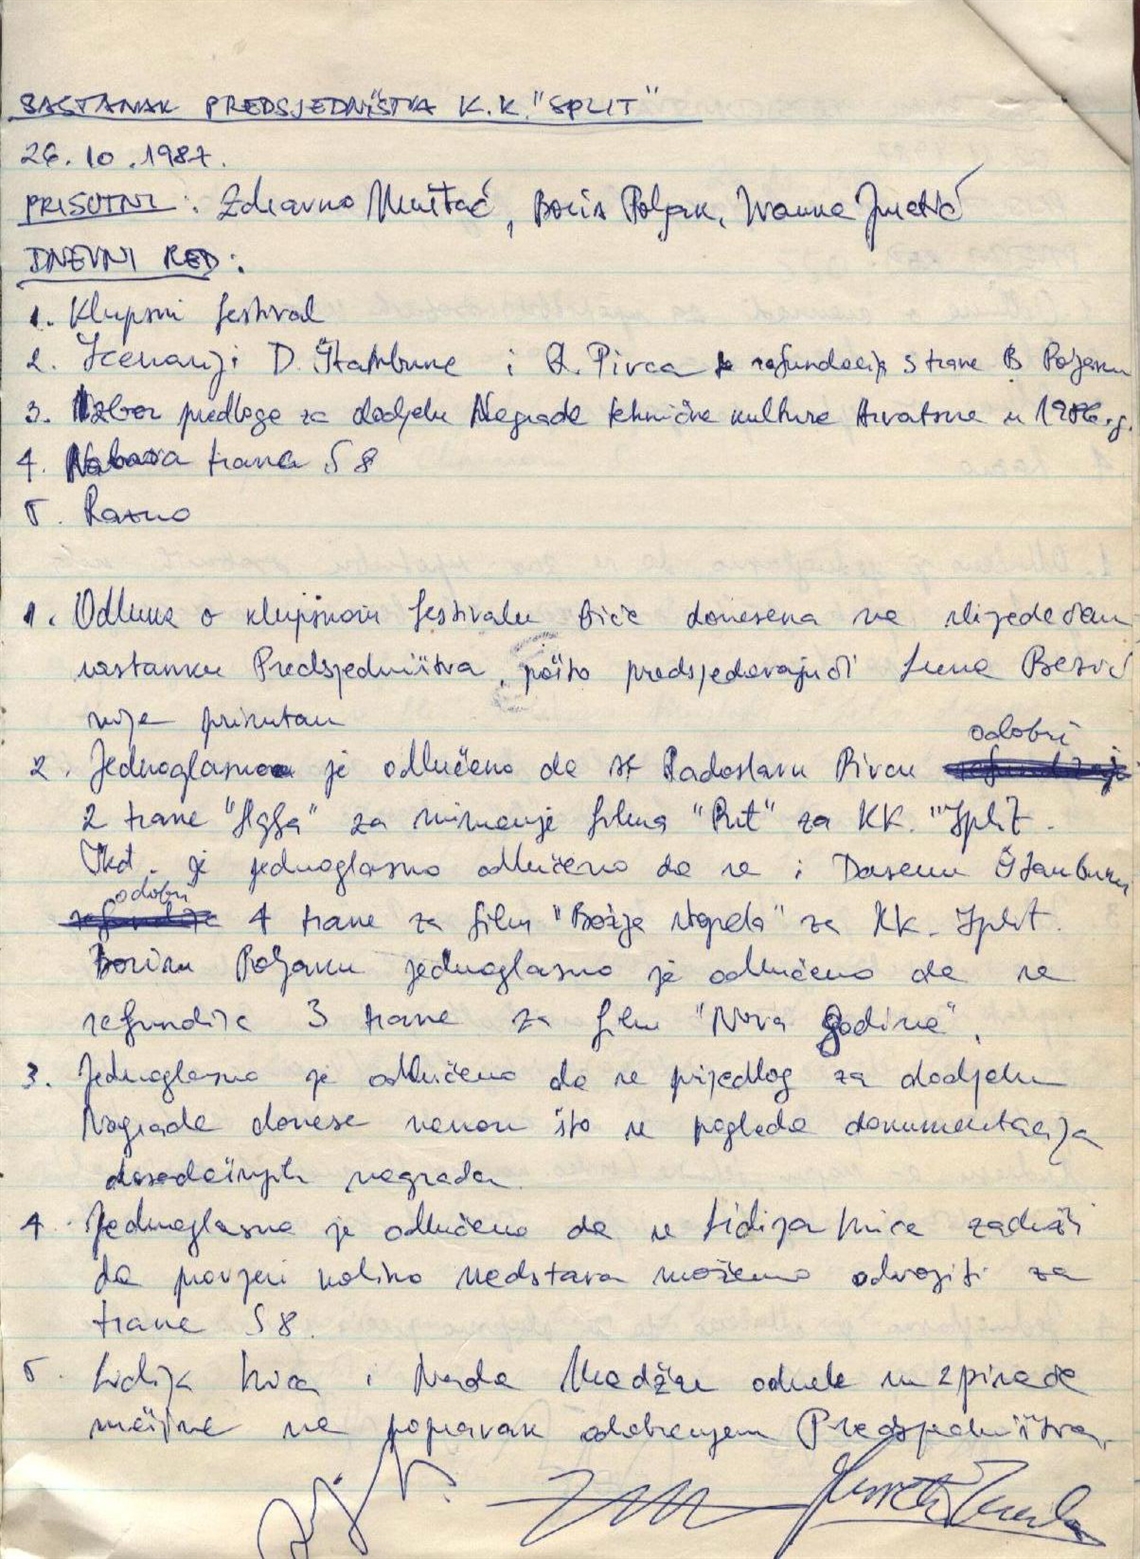 SASTANAK PREDSJEDNIŠTVA K.K. "SPLIT"
26.10.1987.
PRISUTNI: Zdravko Mustać, Boris Poljak, Ivanka
DNEVNI RED:
1. Klupski festival
2. Scenariji D. Štambuka i R. Pivca refundacija trake B Poljaku
3. Izbor predloga za dodjelu Nagrade tehničke kulture Hrvatske u 1986.g.
4. Nabava traka S8
5. Razno
1. Odluka o klupskom festivalu biće donesena na slijedećem
sastanku Predsjedništva, pošto predsjedavajući Bezić
nije prisutan
odobri
2. Jednoglasno je odlučeno da se Radoslavu Pivcu refundiraju
2 trake "Agfa" za snimanje filma "Put" za KK. "Split.
je jednoglasno odlučeno da se i Štambuku
odobri
refundira 4 trake za film "Božja" za KK. Split.
Borisu Poljaku jednoglasno je odlučeno da se
refundira 3 trake za film "Nova godina".
3. Jednoglasno je odlučeno da se prijedlog za dodjelu
Nagrade donese nakon što se pogleda dokumentacija
dosadašnjih nagrada
4. Jednoglasno je odlučeno da se Lidija zaduži
da provjeri koliko sredstava možemo odvojiti za
trake S8.
5. Lidija i Nada Madžar odnele su 2 pisaće
mašine na popravak odobrenjem Predsjedništva.